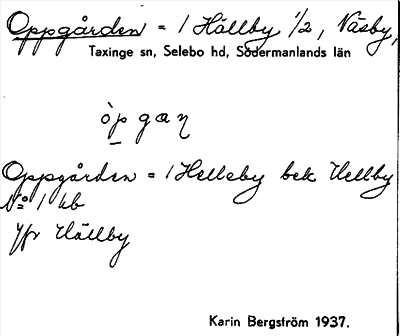 Oppgården = 1 Hällby 1/2, Näsby,
Taxinge sn, Selebo hd, Södermanlands län
òp gan
Oppgården = 1 Helleby bek Hellby
No 1 kb
Jfr Hällby
Karin Bergström 1937.